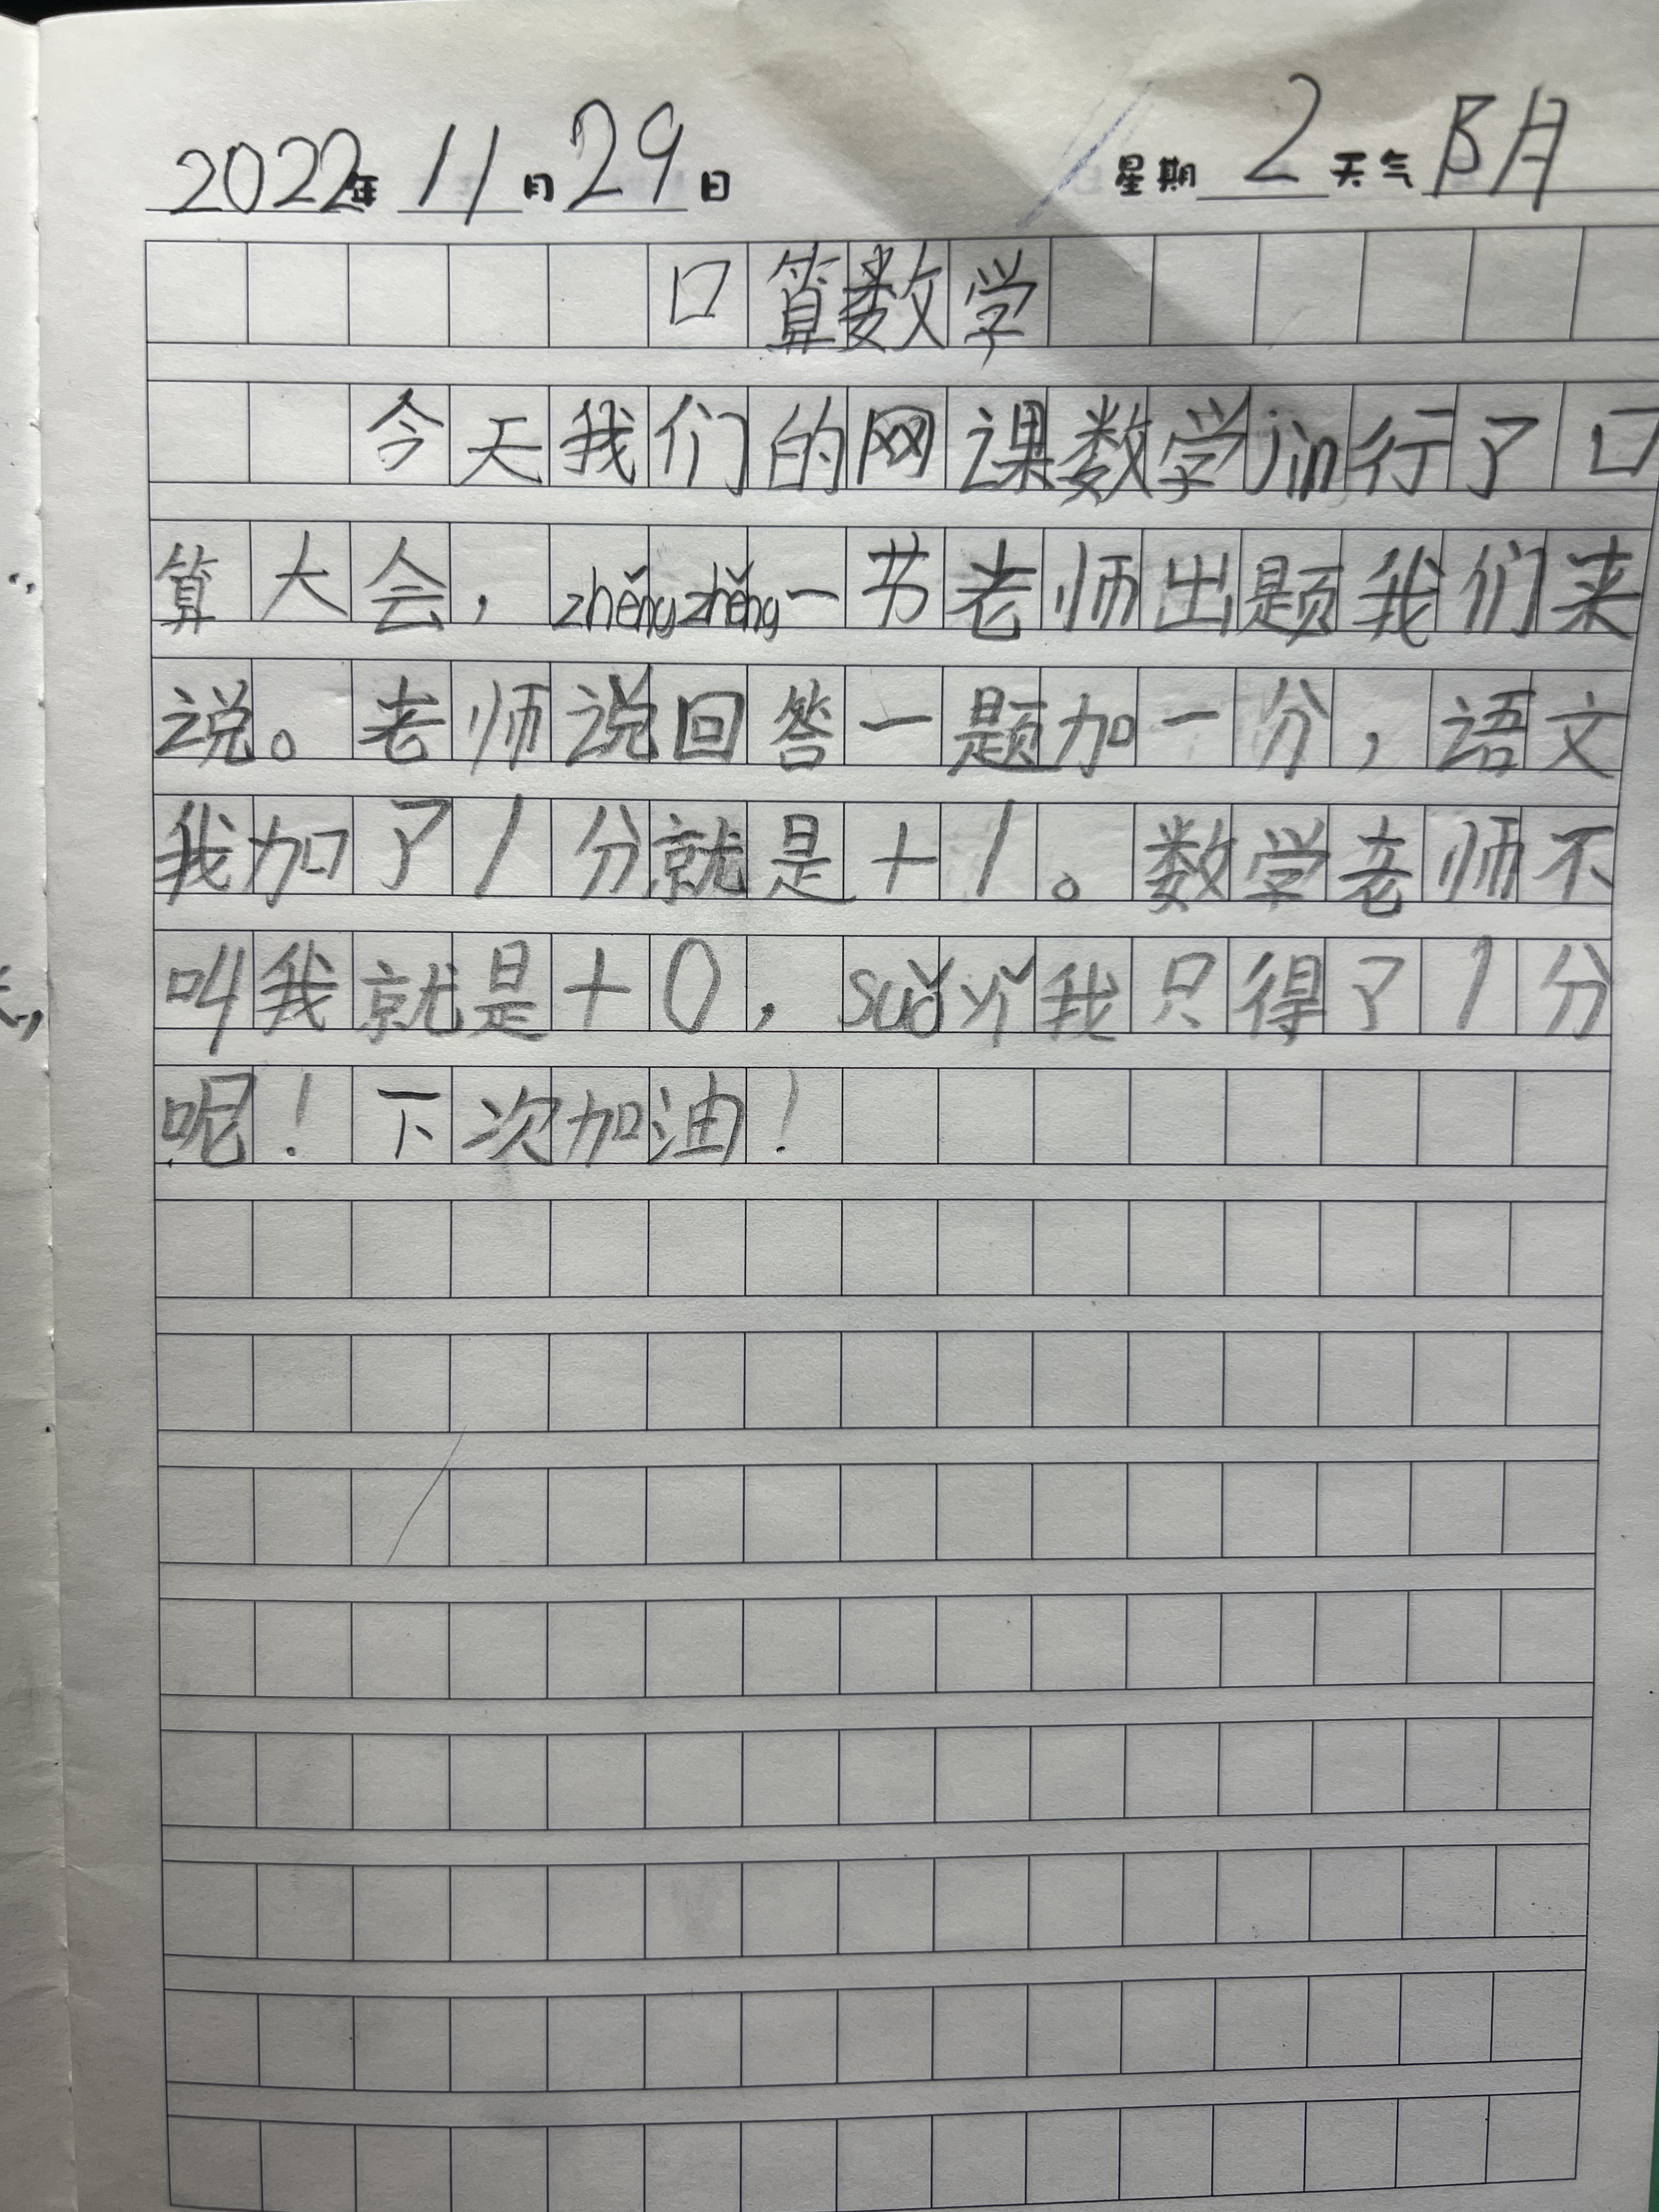 2022年 11月 29日 星期 2 天气 阴
口算数学
今天我们的网课数学jin行了口
算大会，zhěngzhěng一节老师出题我们来
说。老师说回答一题加一分，语文
我加了1分就是+1。数学老师不
叫我就是+0，suǒyǐ我只得了1分
呢！下次加油！